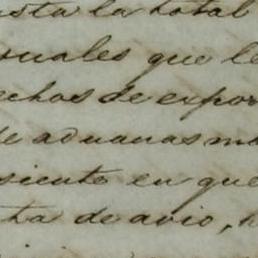 sta la total
suales que le
echos de expor
de aduanas ma
siento en que
ta de avio, h